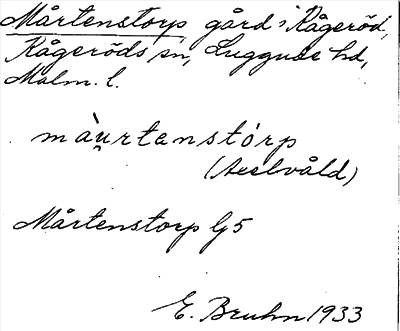 Mårtenstorp gård i Kågeröd,
Kågeröds sn, Luggude hd,
Malm. l.
màu̯rtanstórp
(Axelvåld)
Mårtenstorp G5
E. Bruhn 1933